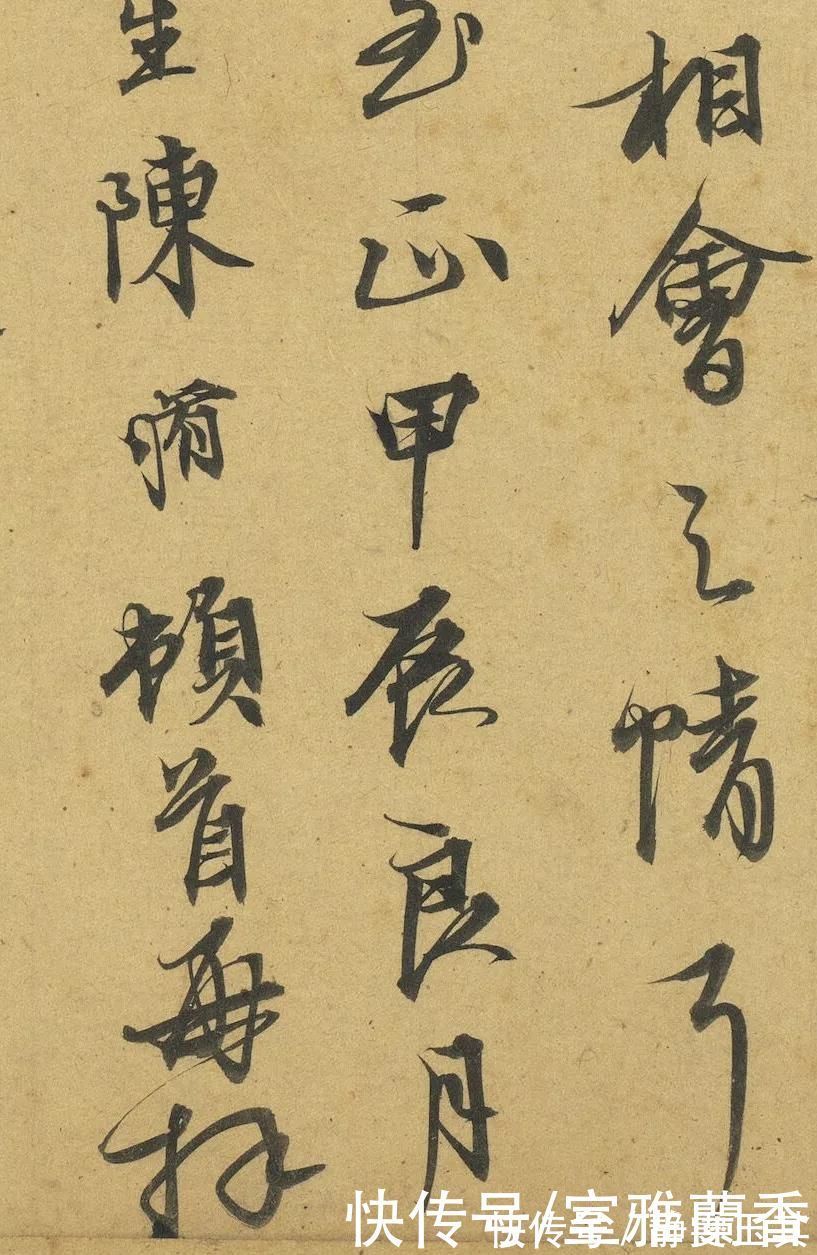 相會之情耳
玉正甲辰良月
生陳頓首再拜
快传号/室雅蘭香